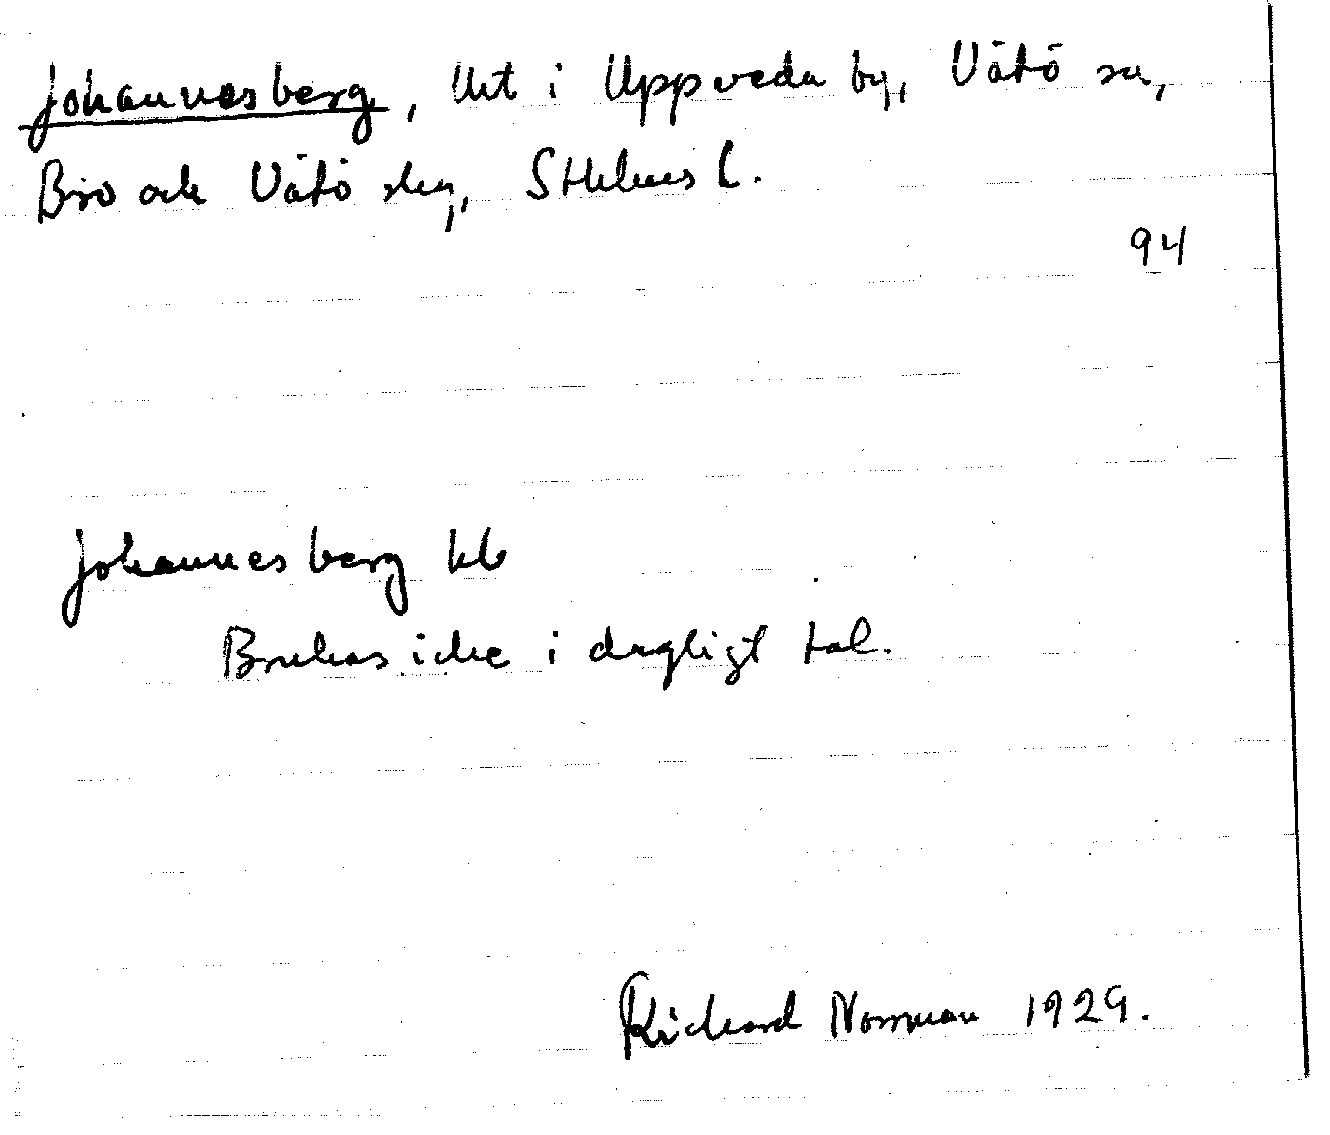 Johannesberg, Uht i Uppveda by, Vätö sn,
Bro och Vätö skg, Sthlms l.
94
Johannesberg kb
Brukas icke i dagligt tal.
Richard Norrman 1929.